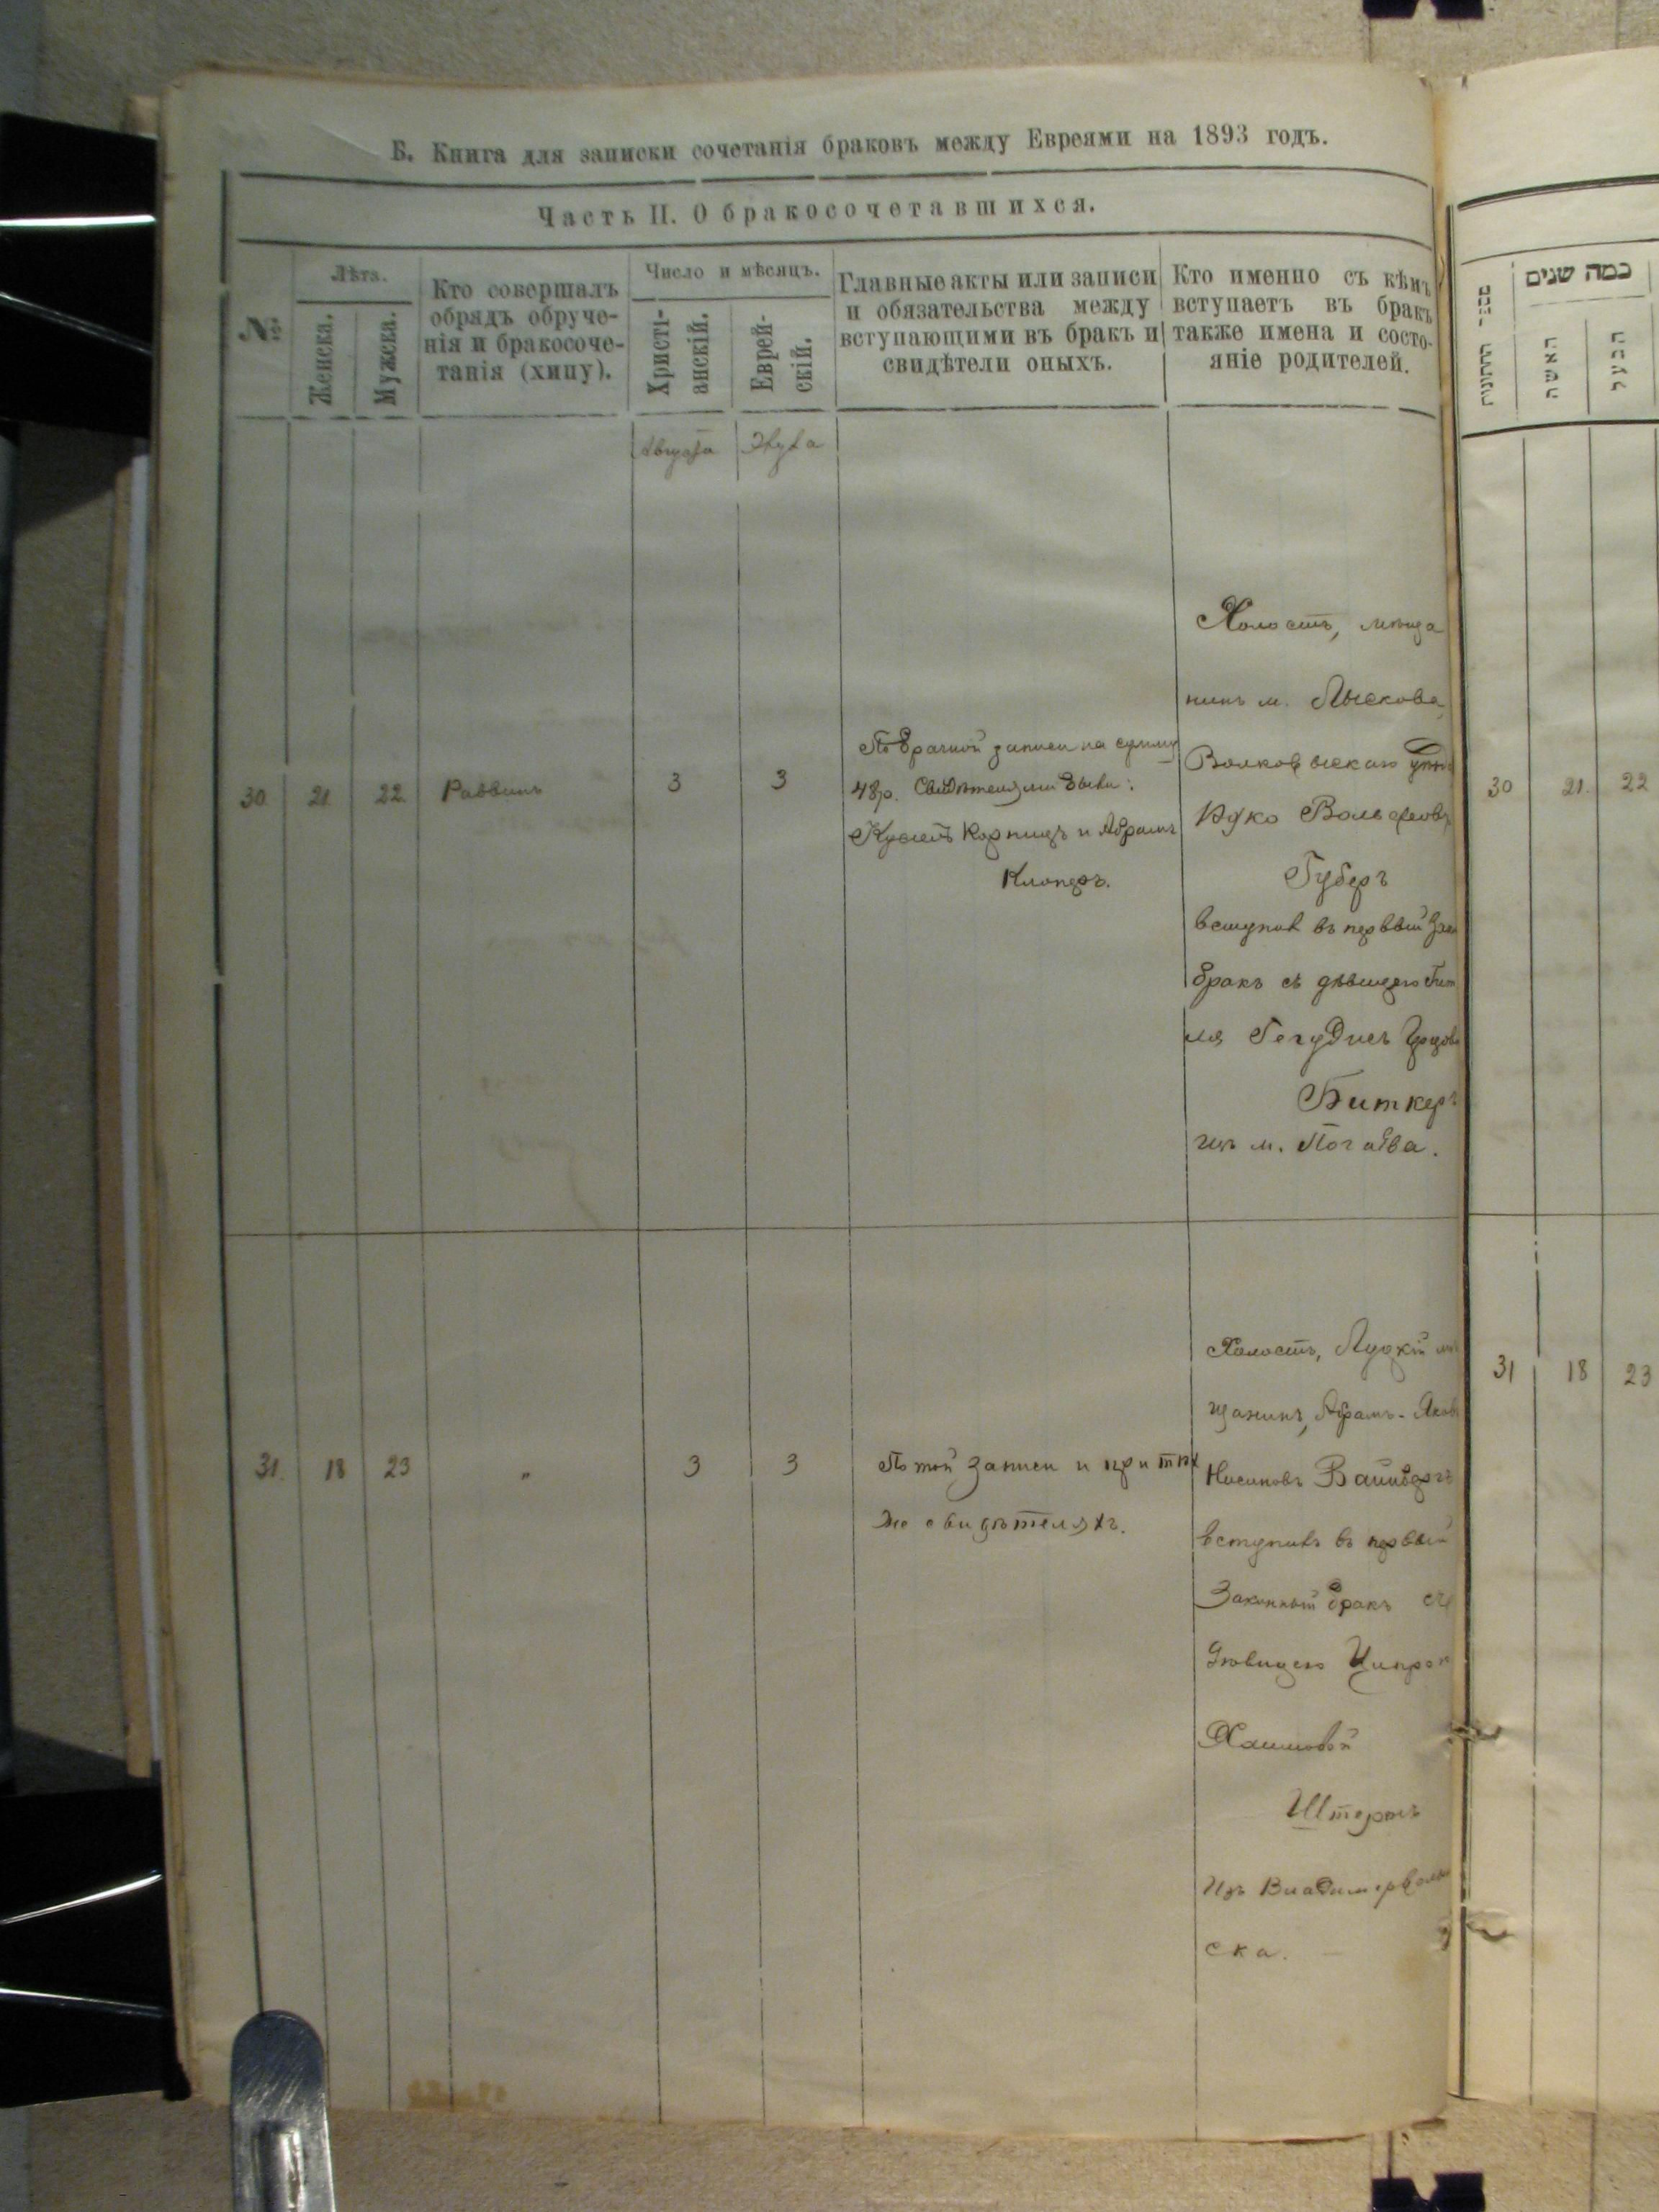 Б. Книга для записки сочетанія браковъ между Евреями на 1893 годъ.
Часть II. О бракосочетавшихся.
№
Лѣта.
Женска.
Мужска.
Кто совершалъ
обрядъ обруче-
нія и бракосоче-
танія (хипу).
Число и мѣсяцъ.
Христі-
анскій.
Еврей-
скій.
Главные акты или записи
и обязательства между
вступающими въ бракъ и
свидѣтели оныхъ.
Кто именно съ кѣмъ
вступаетъ въ бракъ
также имена и состо-
яніе родителей.
Августа
30.
21.
22.
Раввинъ
3
3
По брачной записи на сумму
48 р. Свидѣтелями были:
Корницъ и Абрамъ
Клоперъ.
Холостъ, мѣща
нинъ м. Лыскова,
Волковыскаго
Ицко Вольфовъ
Губеръ
вступилъ въ первый
бракъ съ дѣвицею
Биткеръ
изъ м. Почаева.
31.
18
23
„
3
3
По той записи и при тѣх
же свидѣтеляхъ.
Холостъ, Луцкій мѣ
щанинъ, Абрамъ-Яковъ
Нисиновъ Вайнбергъ
вступилъ въ первый
Законный бракъ съ
дѣвицею Ципрою
Хаимовой
Штернъ
Изъ Владимірволын
ска.
מספר החתונות
כמה שנים
האשה
הבעל
30
21.
22
31
18
23